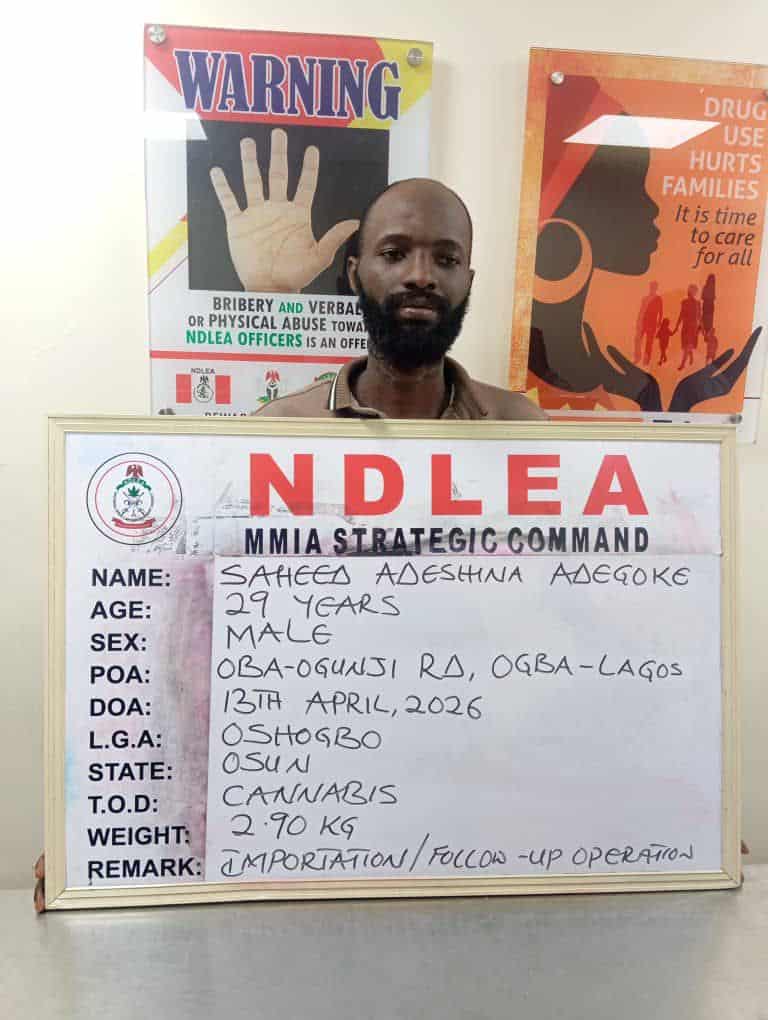 WARNING
BRIBERY AND VERBAL
OR PHYSICAL ABUSE
NDLEA OFFICERS IS AN
NDLEA
DRUG
USE
HURTS
FAMILIES
It is time
to care
for all
NDLEA
MMIA STRATEGIC COMMAND
NAME: SAHEED ADESHINA ADEGOKE
AGE: 29 YEARS
SEX: MALE
POA: OBA-OGUNJI RD, OGBA-LAGOS
DOA: 13TH APRIL, 2026
L.G.A: OSHOGBO
STATE: OSUN
T.O.D: CANNABIS
WEIGHT: 2.90 KG
REMARK: IMPORTATION/FOLLOW-UP OPERATION